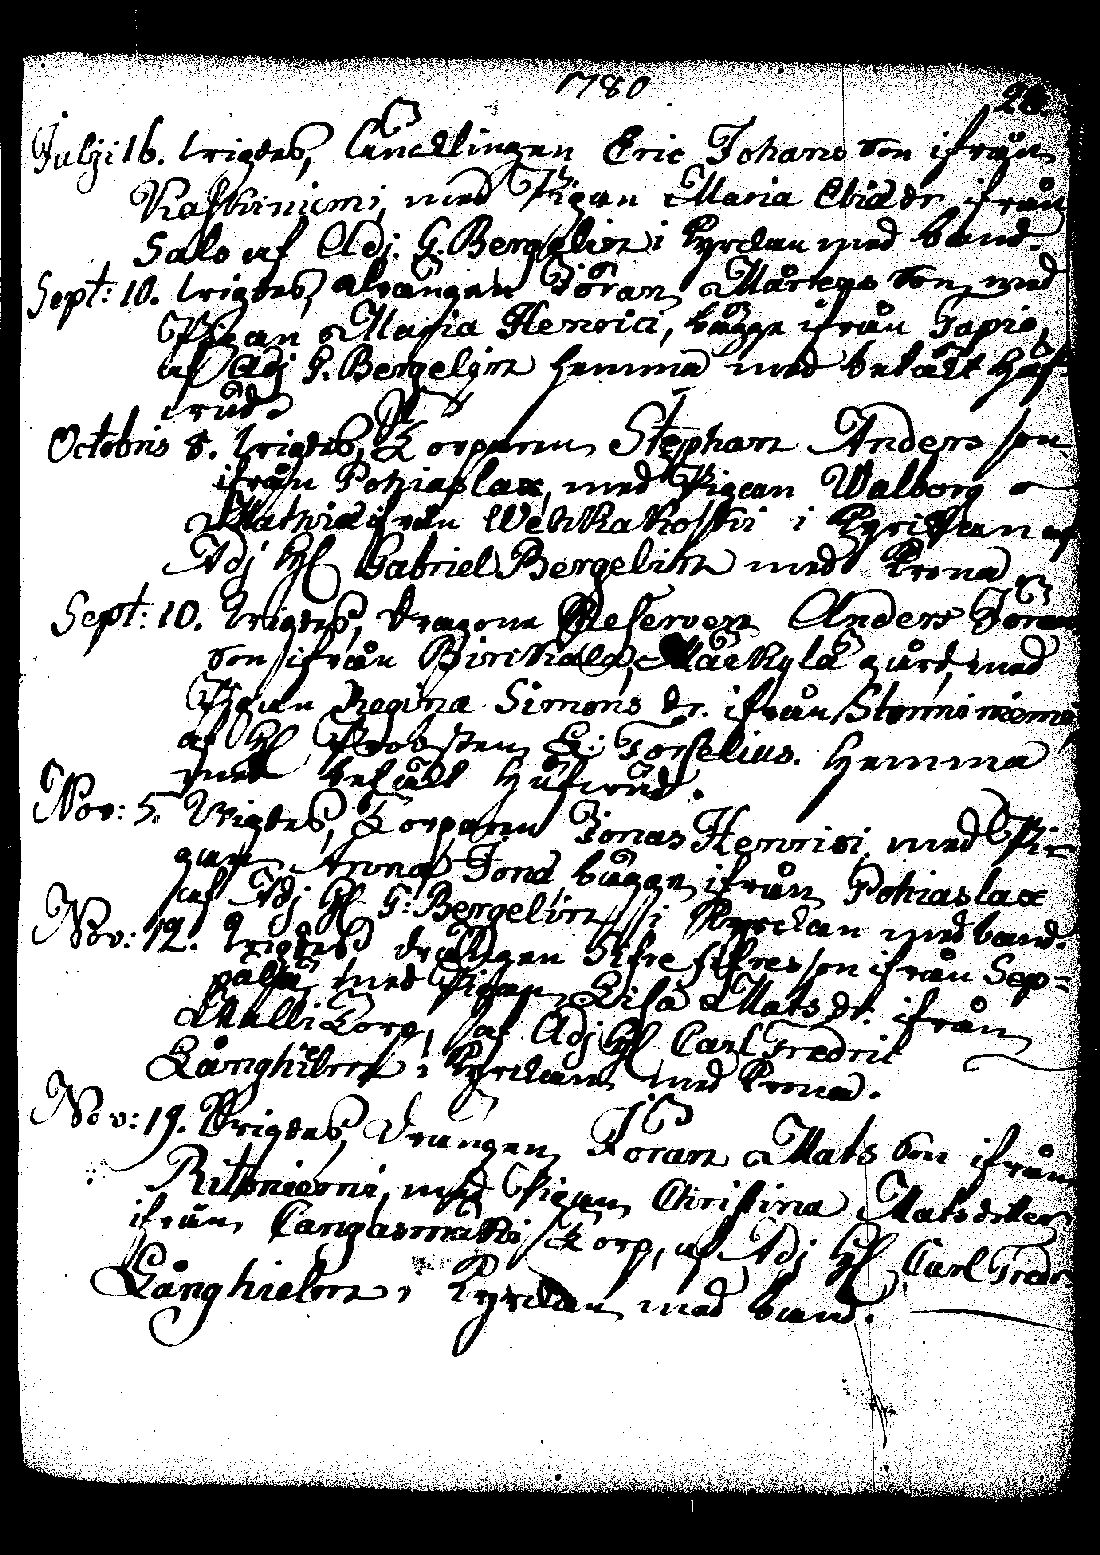 1780
28.
Julji 16. wigdes, Enckllingen Eric Johans Son ifrån
Kaskiniemi, med Pigan Maria Eliædr ifrån
Salo af Adj. G. Bergelin i Kyrckan med band.
Sept: 10. wigdes, drängen Jöran Mårtens Son med
Pigan Maria Henrici, bägge ifrån Tapio,
af Adj G. Bergelin hemma med betält Häf
Octobris 8. wigdes, Torparen Stephan Anders son
ifrån Pohiaslax, med Pigan Walborg
Mathiæ ifrån Wehkakoski i Kyrckan af
Adj H Gabriel Bergelin med Krona
Sept: 10. wigdes, dragone Reserven Anders Jöran
son ifrån Birckala, Mäckylä gård, med
Pigan Regina Simons dr. ifrån
af H Probsten E: Torselius. hemma
med betält
Nov: 5. wigdes, Torparen Jonas Henrici, med Pi-
gan Anna Jonæ bägge ifrån Pohiaslax
af Adj H G: Bergelin i Kyrckan med band.
Nov: 12. wigdes drängen ifrån Sep-
pälä, med Pigan Lisa Mats dr. ifrån
Mulli Torp, af Adj H Carl Fredric
Långhielm i Kyrckan med Krona.
Nov: 19. wigdes, drängen Jöran Mats Son ifrån
Ritoniemi, med Pigan Christina Matsdotter
ifrån Torp, af Adj H Carl Fredr
Långhielm i Kyrckan med band.